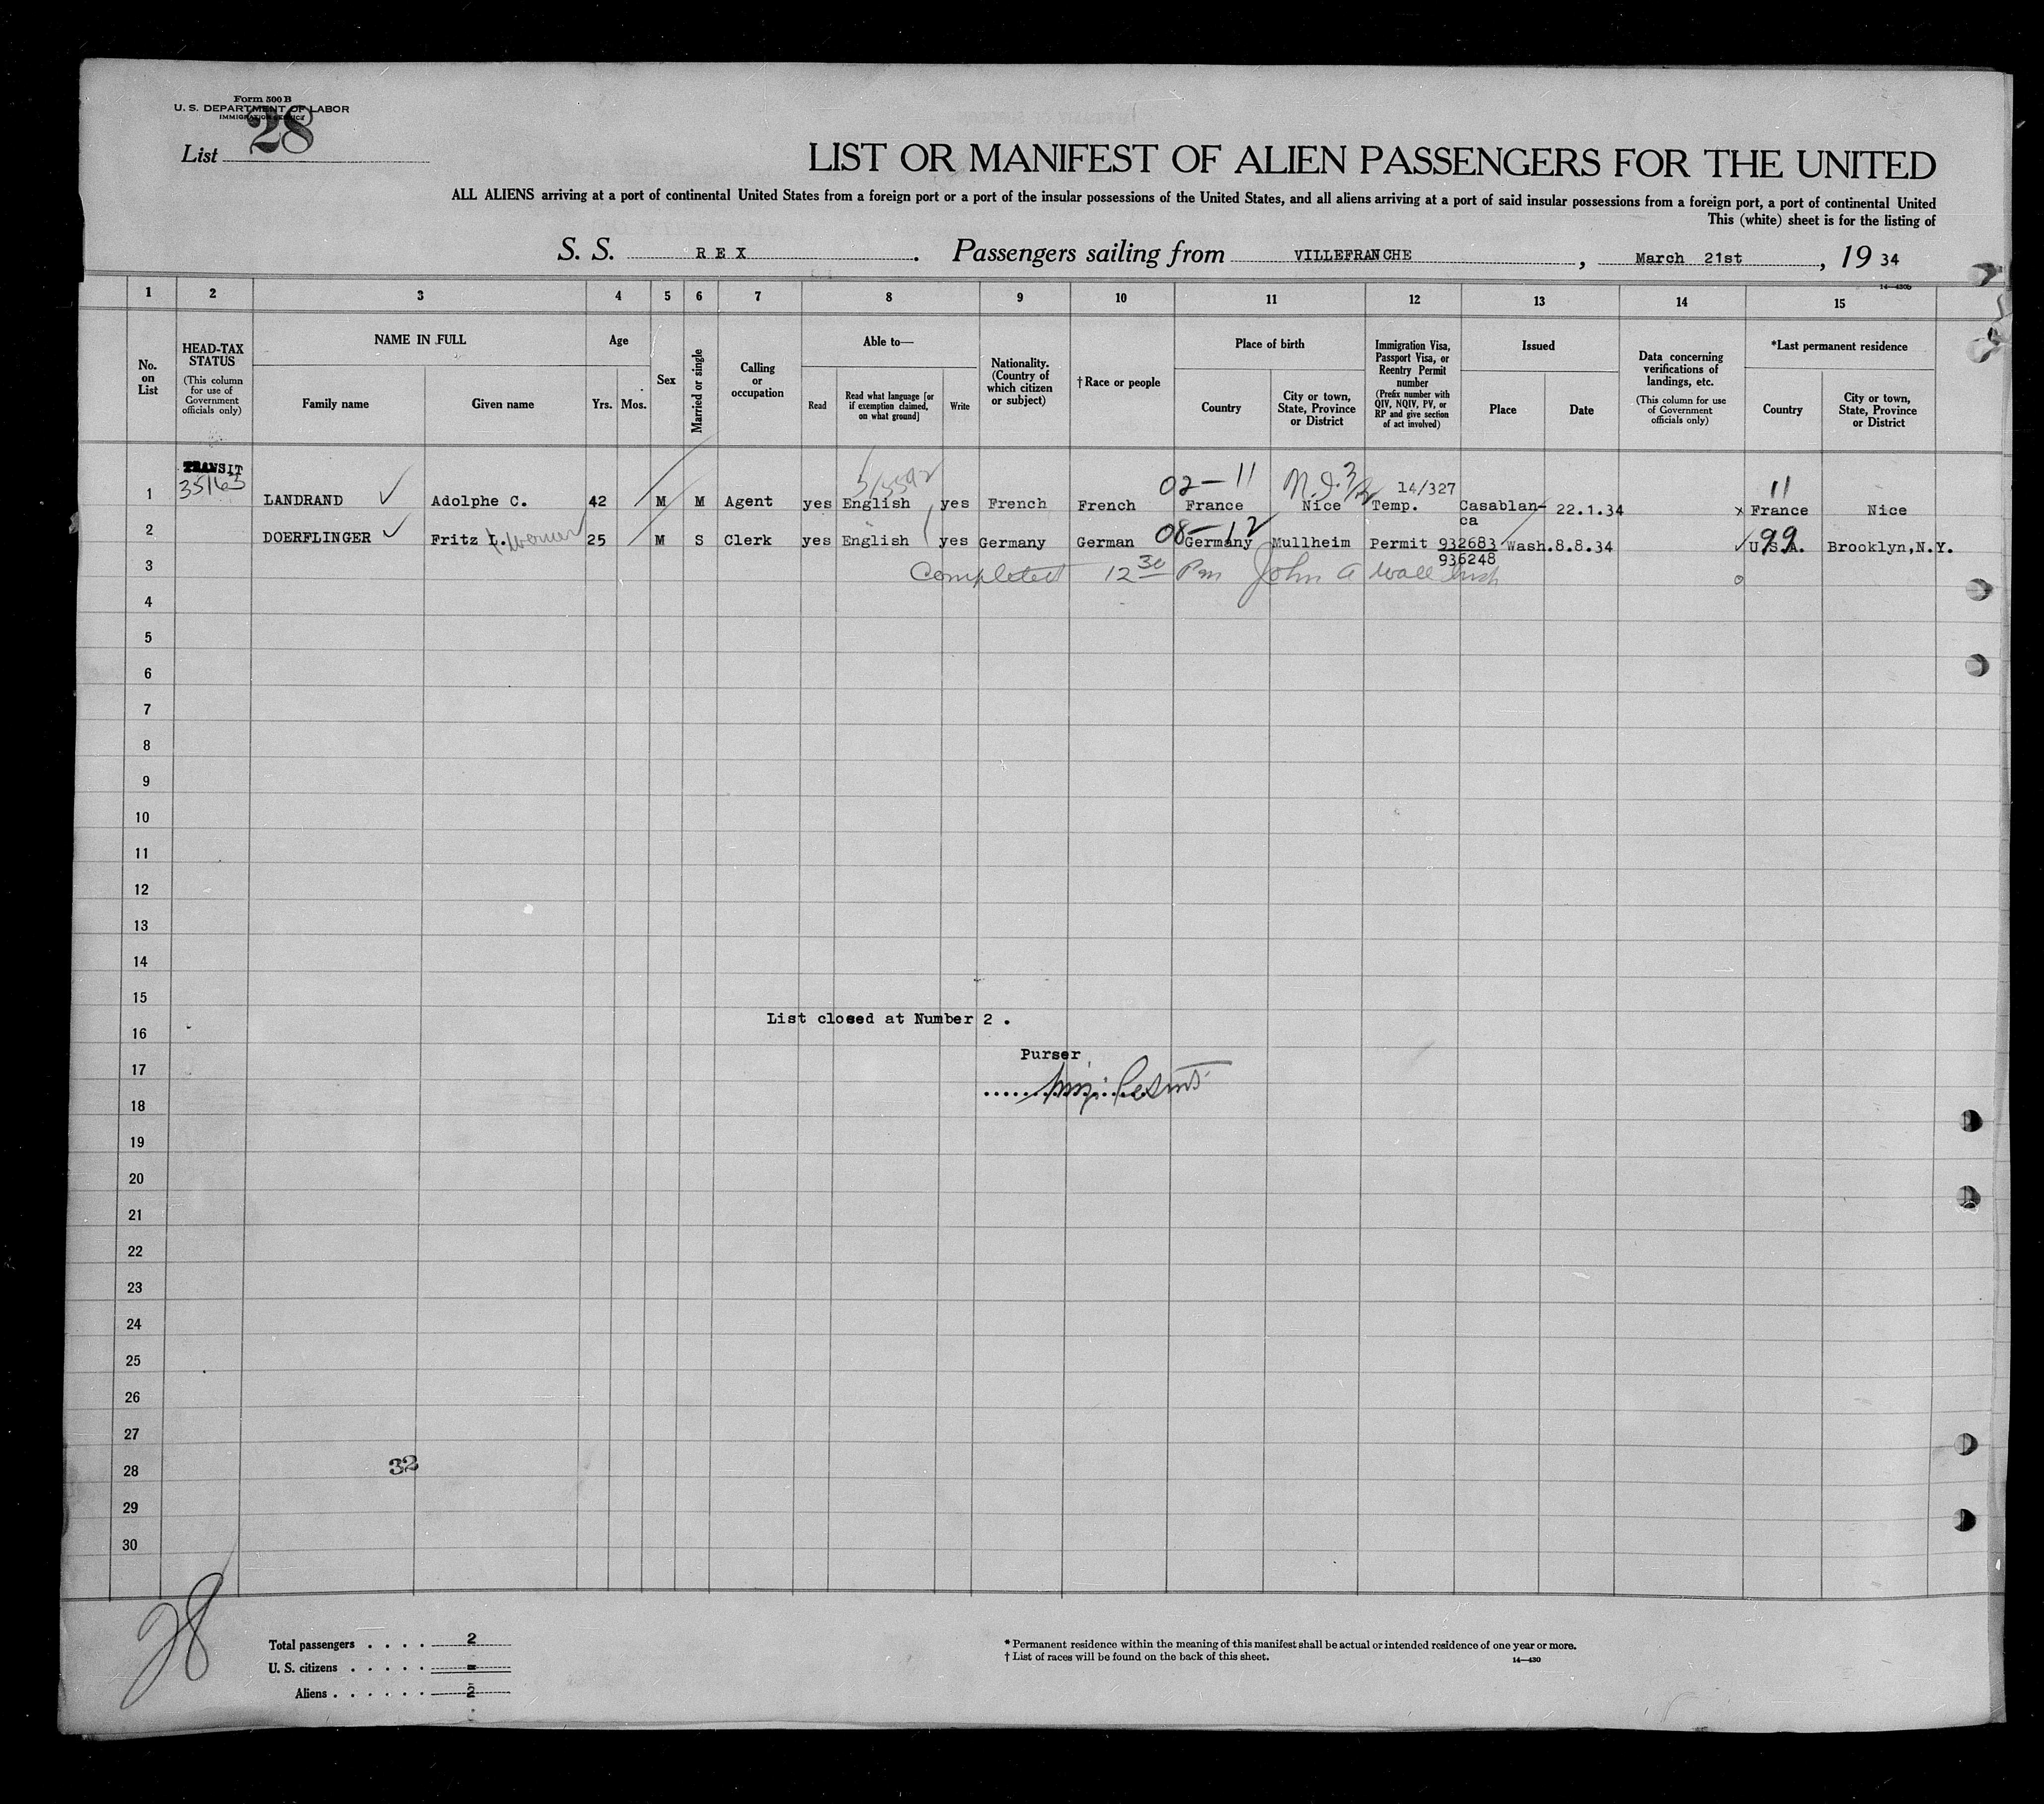 Form 500 B
U. S. DEPARTMENT OF LABOR
IMMIGRATION SERVICE
List 28
LIST OR MANIFEST OF ALIEN PASSENGERS FOR THE UNITED
ALL ALIENS arriving at a port of continental United States from a foreign port or a port of the insular possessions of the United States, and all aliens arriving at a port of said insular possessions from a foreign port, a port of continental United
This (white) sheet is for the listing of
S. S. REX . Passengers sailing from VILLEFRANCHE , March 21st , 19 34
14—430b
1 2 3 4 5 6 7 8 9 10 11 12 13 14 15
No. on List
HEAD-TAX STATUS (This column for use of Government officials only)
NAME IN FULL
Family name
Given name
Age
Yrs. Mos.
Sex
Married or single
Calling or occupation
Able to—
Read
Read what language [or if exemption claimed, on what ground]
Write
Nationality. (Country of which citizen or subject)
† Race or people
Place of birth
Country
City or town, State, Province or District
Immigration Visa, Passport Visa, or Reentry Permit number (Prefix number with QIV, NQIV, PV, or RP and give section of act involved)
Issued
Place
Date
Data concerning verifications of landings, etc. (This column for use of Government officials only)
*Last permanent residence
Country
City or town, State, Province or District
TRANSIT
35163 02-11 14/327 11
1 LANDRAND Adolphe C. 42 M M Agent yes English yes French French France Nice Temp. Casablan- 22.1.34 x France Nice
ca
08-12 99
2 DOERFLINGER Fritz L. Werner 25 M S Clerk yes English yes Germany German Germany Mullheim Permit 932683 Wash. 8.8.34 U.S.A. Brooklyn,N.Y.
936248
3 Completed 12 30 Pm John A Wall Insp
4
5
6
7
8
9
10
11
12
13
14
15
List closed at Number 2 .
16
Purser
17
18
19
20
21
22
23
24
25
26
27
32
28
29
30
28
Total passengers . . . . 2
U. S. citizens . . . . . -
Aliens . . . . . . 2
* Permanent residence within the meaning of this manifest shall be actual or intended residence of one year or more.
† List of races will be found on the back of this sheet.
14—430